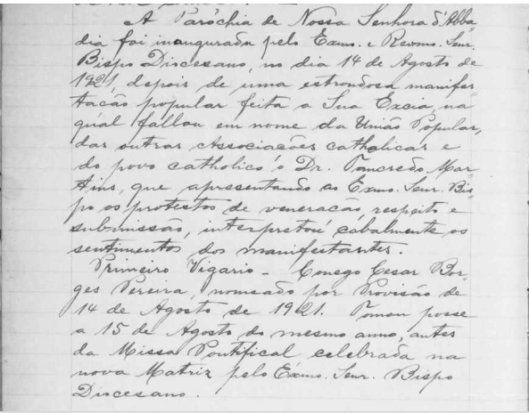 A Parochia de Nossa Senhora d'Abba
dia foi inaugurada pelo Exmo. e Revmo. Snr.
Bispo Diocesano, no dia 14 de Agosto de
1921, depois de uma estrondosa manifes
tacão popular feita a Sua Excia, na
qual fallou em nome da União Popular,
das outras Associacões catholicas e
do povo catholico o Dr. Tancredo Mar
tins, que apresentando ao Exmo. Snr. Bis
po os protestos de veneracão, respeito e
submissão, interpretou cabalmente os
sentimentos dos manifestantes.
Primeiro Vigario - Conego Cesar Bor
ges Pereira, nomeado por Provisão de
14 de Agosto de 1921. Tomou posse
a 15 de Agosto do mesmo anno, antes
da Missa Pontifical celebrada na
nova Matriz pelo Exmo. Snr. Bispo
Diocesano.